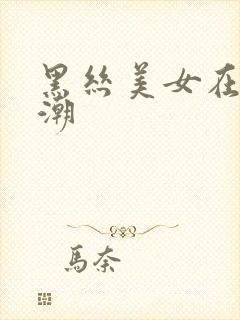 黑丝美女在
潮
馬奈